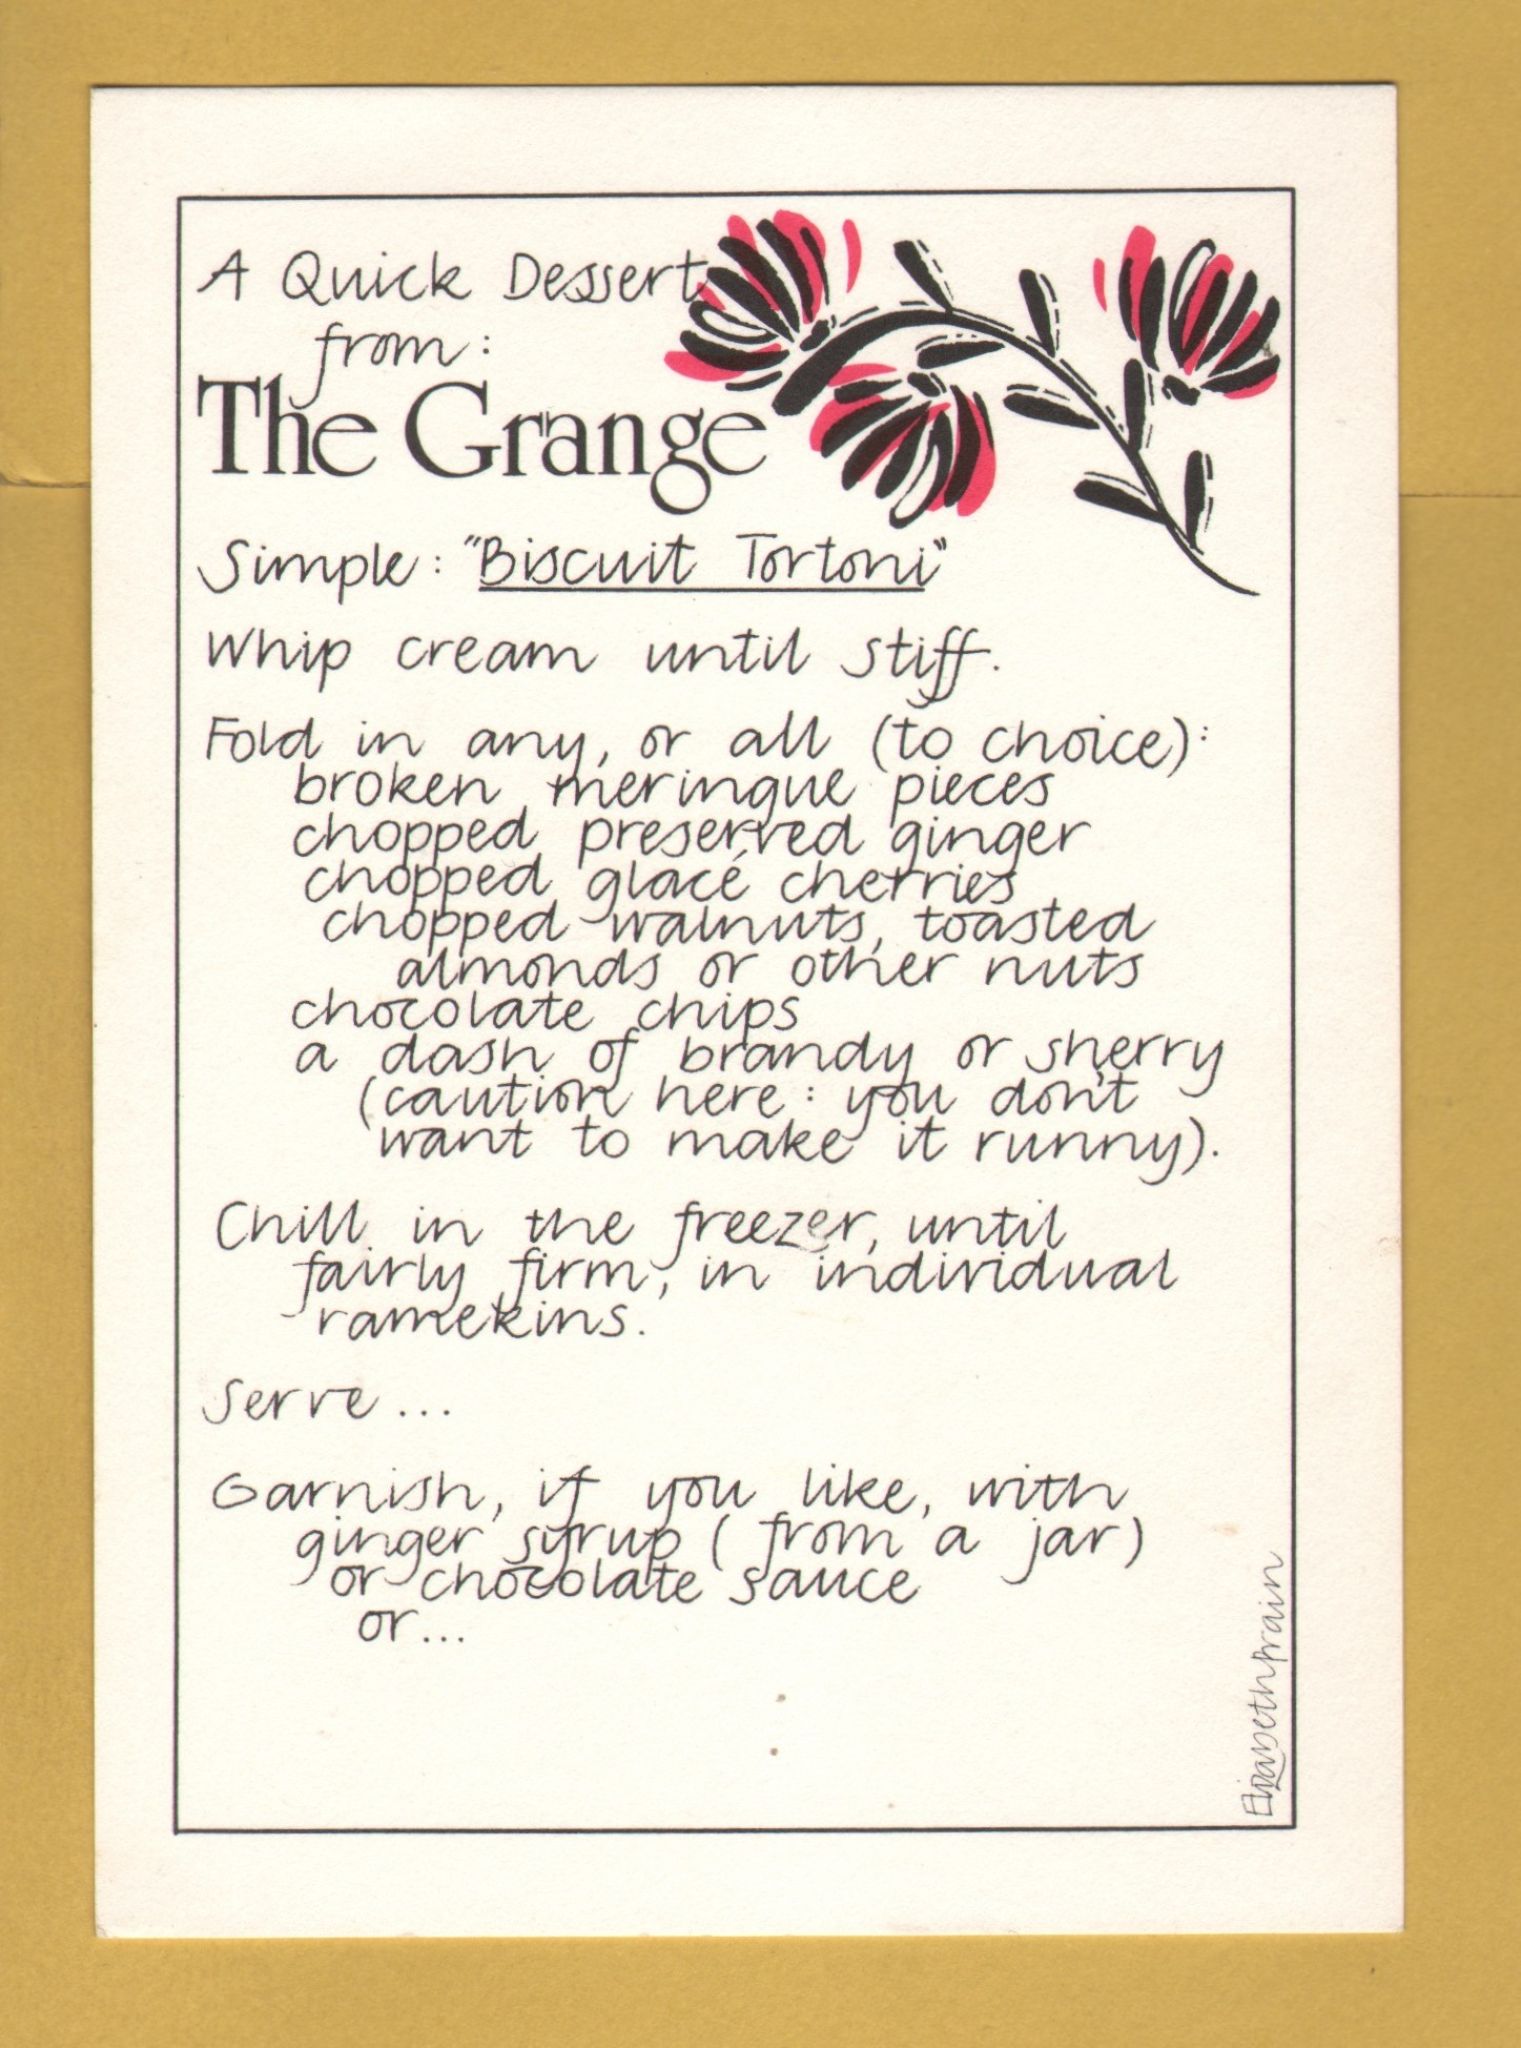 A Quick Dessert
from:
The Grange
Simple: "Biscuit Tortoni"
Whip cream until stiff.
Fold in any, or all (to choice):
broken meringue pieces
chopped preserved ginger
chopped glacé cherries
chopped walnuts, toasted
almonds or other nuts
chocolate chips
a dash of brandy or sherry
(caution here: you don't
want to make it runny).
Chill in the freezer, until
fairly firm, in individual
ramekins.
Serve...
Garnish, if you like, with
ginger syrup (from a jar)
or chocolate sauce
or...
Elizabeth Prain